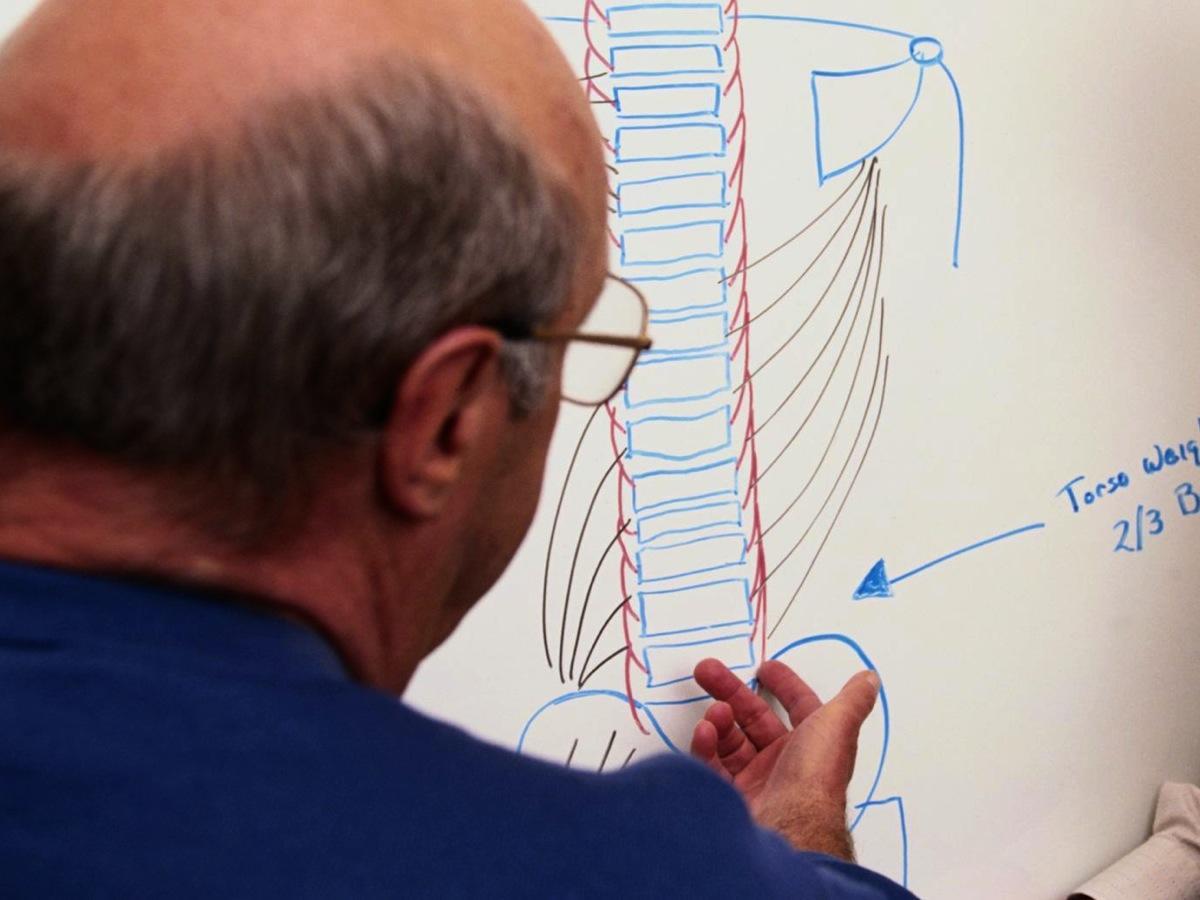 Torso Weig
2/3 B